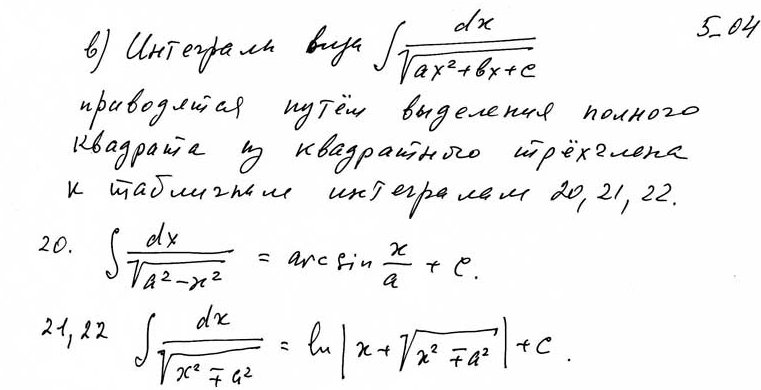 5_04
в) Интегралы вида ∫ dx / √(ax² + bx + c)
приводятся путём выделения полного
квадрата из квадратного трёхчлена
к табличным интегралам 20, 21, 22.
20. ∫ dx / √(a² − x²) = arcsin x/a + C.
21, 22 ∫ dx / √(x² ∓ a²) = ln |x + √(x² ∓ a²)| + C.